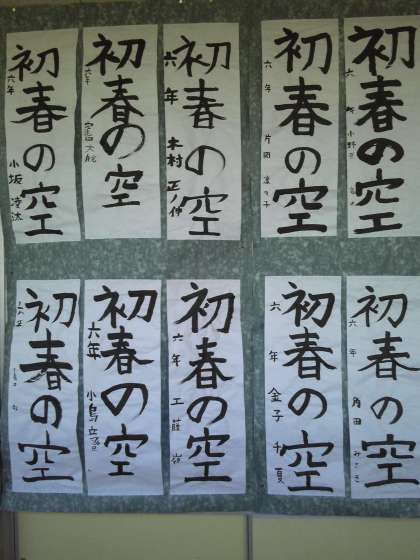 初春の空
六年
初春の空
六年 小野
初春の空
六年 片岡
初春の空
六年 木村 正ノ伸
初春の空
六年
初春の空
六年 小坂 凌汰
初春の空
六年 角田 みさき
初春の空
六年 金子 千夏
初春の空
六年 工藤
初春の空
六年 小島
初春の空